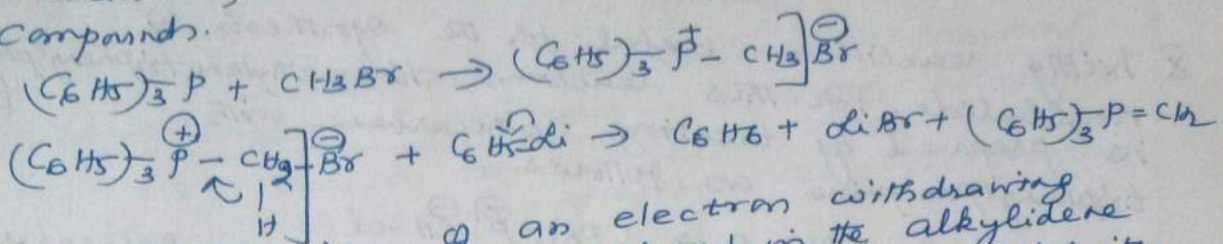 compounds.
(C6H5)3P + CH3Br → (C6H5)3 P+ - CH3]⊖Br
(C6H5)3 P⊕ - CH2]⊖Br + C6H5-Li → C6H6 + LiBr + (C6H5)3-P=CH2
H
an electron withdrawing
in the alkylidene